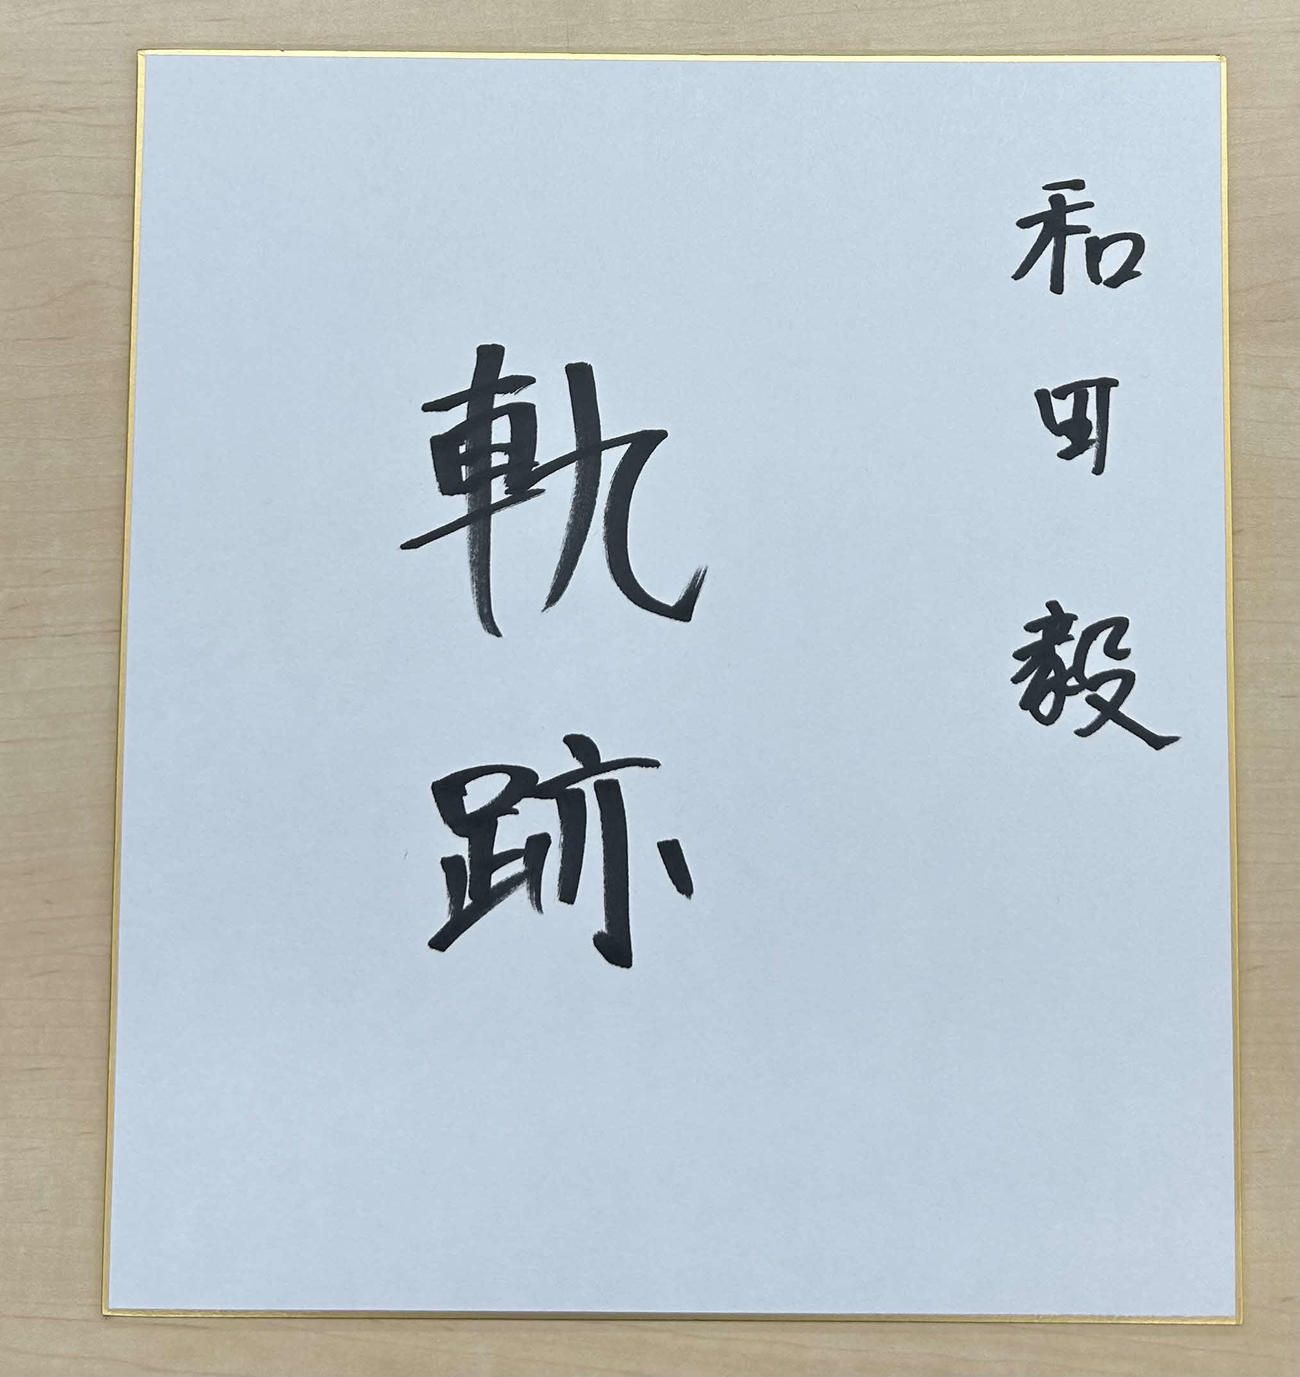 和田毅
軌跡